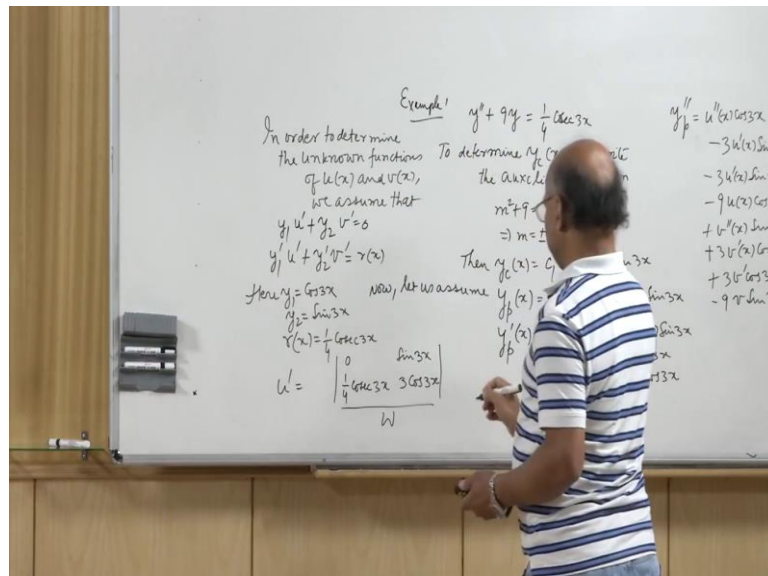 Example: y'' + 9y = 1/4 Cosec3x
In order to determine
the unknown functions
of u(x) and v(x),
we assume that
y₁u' + y₂v' = 0
y₁'u' + y₂'v' = r(x)
Here y₁ = Cos3x
y₂ = Sin3x
r(x) = 1/4 Cosec3x
u' = | 0 Sin3x |
| 1/4 Cosec3x 3Cos3x |
W
To determine y_c
the
m² + 9
=> m = ±
Then y_c(x) = C₁ Sin3x
Now, let us assume y_p(x) = Sin3x
y_p'(x) Sin3x
y_p'' = u''(x)Cos3x
- 3u'(x)Sin
- 3u'(x)Sin
- 9u(x)Cos
+ v''(x)Sin
+ 3v'(x)Co
+ 3v'Cos3
- 9vSin